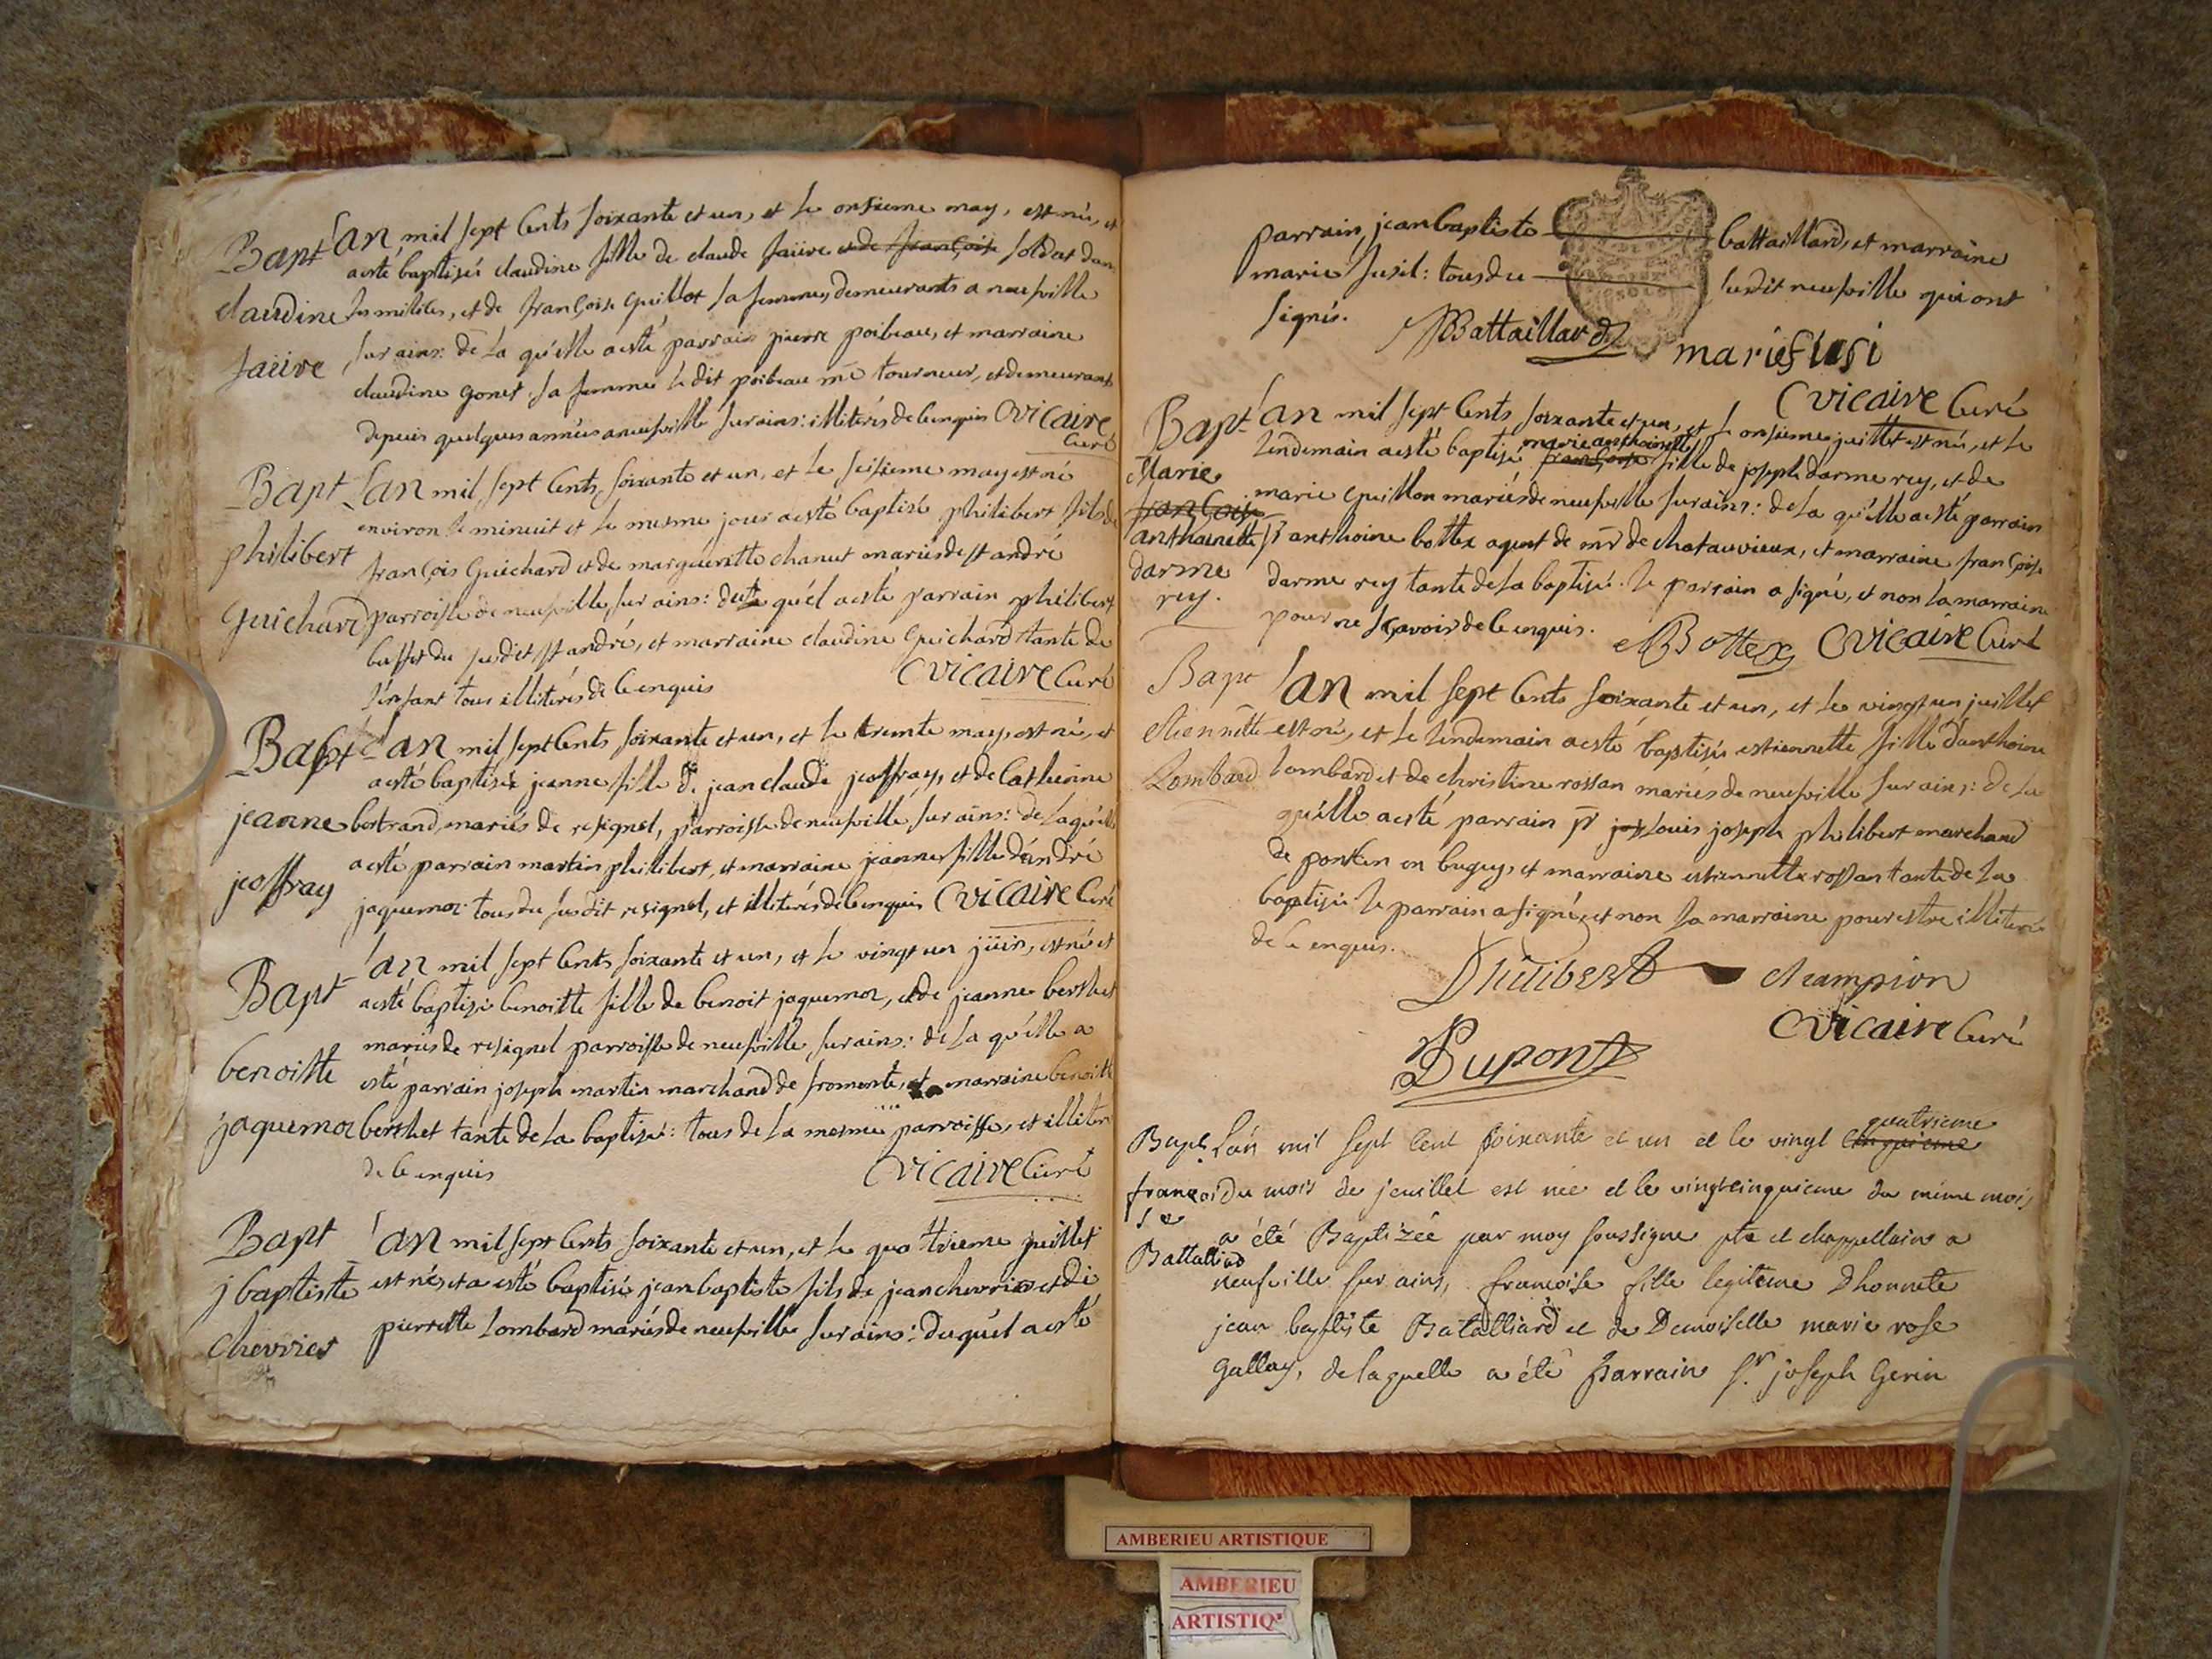 Bapt L'an mil sept cents soixante et un, et le onsieme may, est née, et
a esté baptisée claudine fille de claude faüre et de françoise soldat dans
claudine les milices, et de françoise guillot sa femme, demeurants a neufville
faüre sur ains: de la qu'elle a esté parrain pierre poibeau, et marraine
claudine gonet sa femme le dit poibeau me tourneur, et demeurants
depuis quelques années a neufville sur ains: illiterés de ce enquis C Vicaire
Curé
Bapt L'an mil sept cents soixante et un, et le seisieme may est né
environ le minuit et le mesme jour a esté baptisé philibert fils de
philibert françois Guichard et de margueritte chanut mariés de st andré
Guichard parroisse de neufville sur ains: du qu'el a esté parrain philibert
buffet du susdit st andré, et marraine claudine Guichard tante de
l'enfant tous illiterés de ce enquis C Vicaire Curé
Bapt L'an mil sept cents soixante et un, et le trente may, est née, et
a esté baptisée jeanne fille de jean claude jeoffray, et de Catherine
jeanne bertrand, mariés de resignel, parroisse de neufville sur ains: de la qu'elle
a esté parrain martin philibert, et marraine jeanne fille d'andré
jeoffray jaquemoz tous du susdit resignel, et illiterés de ce enquis C Vicaire Curé
L'an mil sept cents soixante et un, et le vingt un jüin, est née et
Bapt a esté baptisée benoitte fille de benoit jaquemoz, et de jeanne berthet
mariés de resignel parroisse de neufville sur ains: de la qu'elle a
benoitte esté parrain joseph martin marchand de fromente, et marraine benoitte
jaquemoz berthet tante de la baptisée: tous de la mesme parroisse, et illiter
de ce enquis C Vicaire Curé
Bapt L'an mil sept cents soixante et un, et le quatrieme juillet
j baptiste est né, et a esté baptisé jean baptiste fils de jean chevrier et de
Chevrier pierrette Lombard mariés de neufville sur ains: du qu'el a esté
parrain jean baptiste battaillard, et marraine
marie fusil: tous du susdit neufville qui ont
signés.
Battaillard marie fusi
C Vicaire Curé
Bapt L'an mil sept cents soixante et un, et le onsieme juillet est née, et le
marie anthoinette
lendemain a esté baptisée françoise fille de joseph darme rey, et de
Marie marie Guillon mariés de neufville sur ains: de la qu'elle a esté parrain
françoise
anthoinette sr anthoine bottex agent de mr de chatauvieux, et marraine françoise
darme darme rey tante de la baptisée. le parrain a signé, et non la marraine
rey. pour ne sçavoir de ce enquis. Bottex C Vicaire Curé
Bapt L'an mil sept cents soixante et un, et le vingt un juillet
etiennette est née, et le lendemain a esté baptisée estiennette fille d'anthoine
Lombard lombard et de christine rossan mariés de neufville sur ains: de la
qu'elle a esté parrain sr jos Louis joseph philibert marchand
de pontin en bugey, et marraine estiennette rossan tante de la
baptisée le parrain a signé, et non la marraine pour estre illiterée
de ce enquis.
Philibert champion
C Vicaire Curé
Dupont
quatrieme
Bapt. L'an mil sept cent soixante et un et le vingt cinquieme
françoi du mois de jeuillet est née et le vingtcinquieme du même mois
se a été Baptizée par moy soussigne ptre et chappellain a
Battalliard neufville sur ains, françoise fille legiteme D'honnete
jean baptiste Batalliard et de Demoiselle marie rose
Gallay, de laquelle a été Parrain Sr. joseph Gerin
AMBERIEU ARTISTIQUE
AMBERIEU
ARTISTIQ